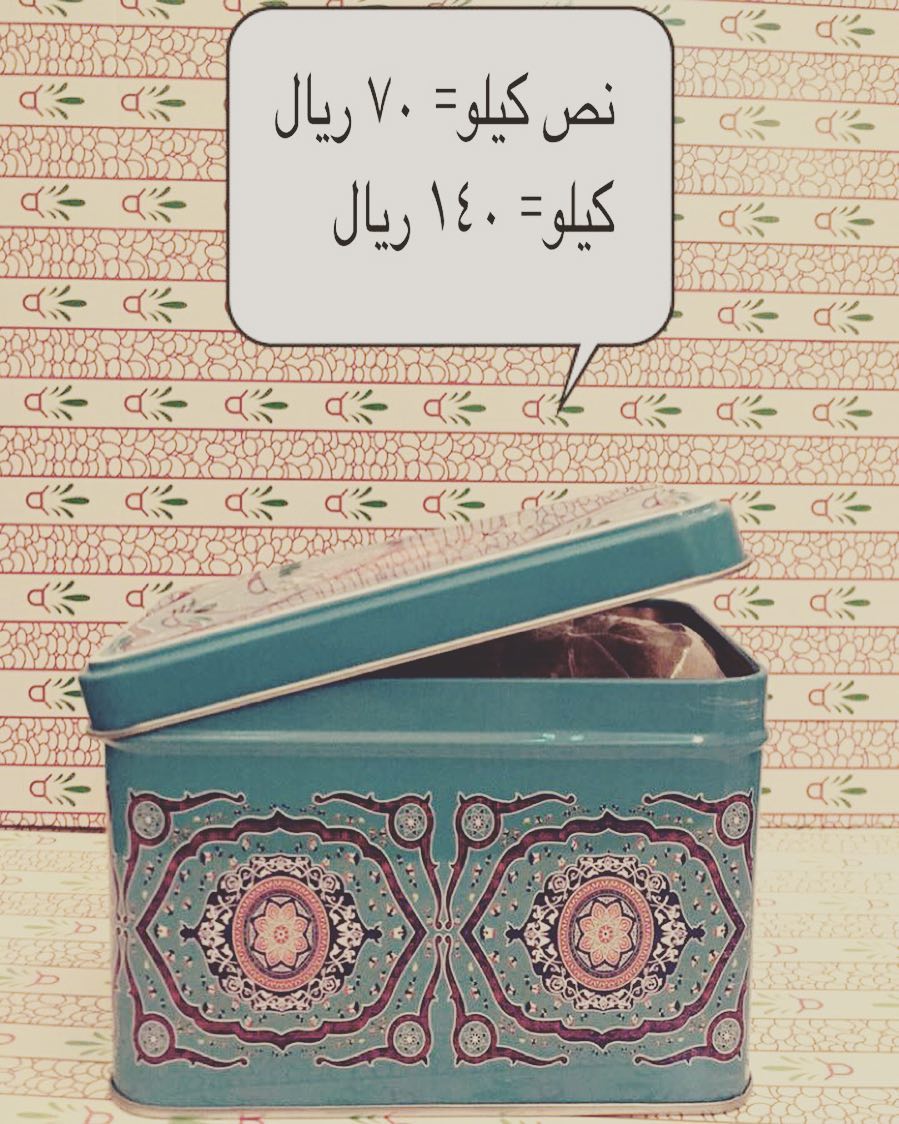 نص كيلو= ٧٠ ريال
كيلو= ١٤٠ ريال